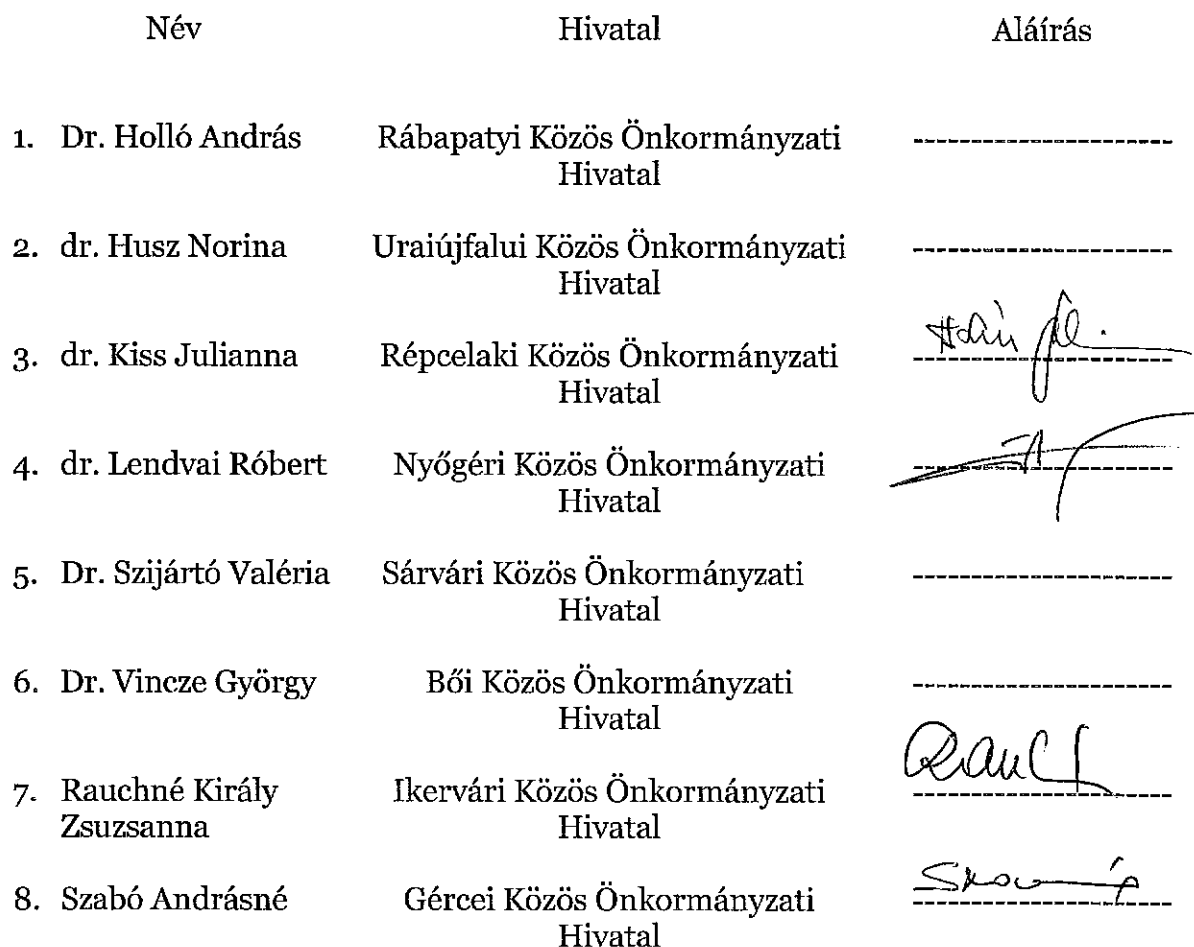 Név Hivatal Aláírás
1. Dr. Holló András Rábapatyi Közös Önkormányzati
Hivatal
2. dr. Husz Norina Uraiújfalui Közös Önkormányzati
Hivatal
3. dr. Kiss Julianna Répcelaki Közös Önkormányzati
Hivatal
4. dr. Lendvai Róbert Nyőgéri Közös Önkormányzati
Hivatal
5. Dr. Szijártó Valéria Sárvári Közös Önkormányzati
Hivatal
6. Dr. Vincze György Bői Közös Önkormányzati
Hivatal
7. Rauchné Király Ikervári Közös Önkormányzati
Zsuzsanna Hivatal
8. Szabó Andrásné Gércei Közös Önkormányzati
Hivatal